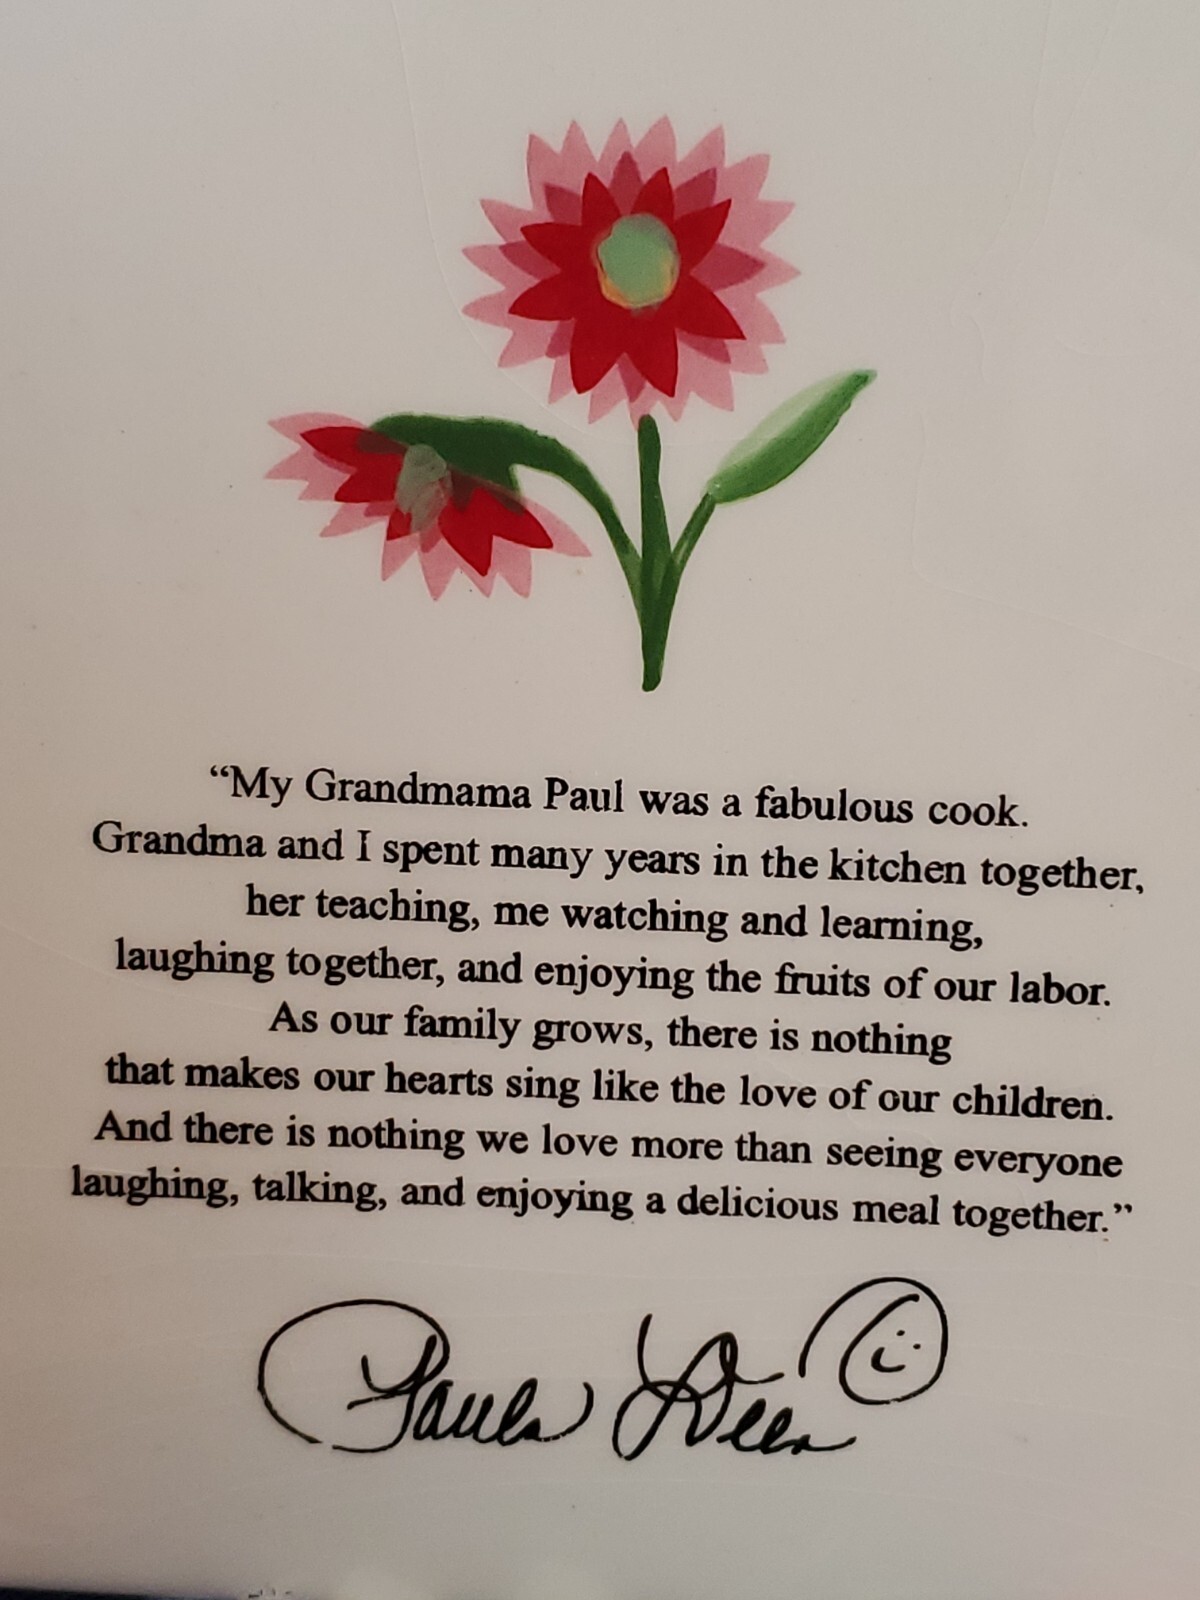 “My Grandmama Paul was a fabulous cook.
Grandma and I spent many years in the kitchen together,
her teaching, me watching and learning,
laughing together, and enjoying the fruits of our labor.
As our family grows, there is nothing
that makes our hearts sing like the love of our children.
And there is nothing we love more than seeing everyone
laughing, talking, and enjoying a delicious meal together.”
Paula Deen